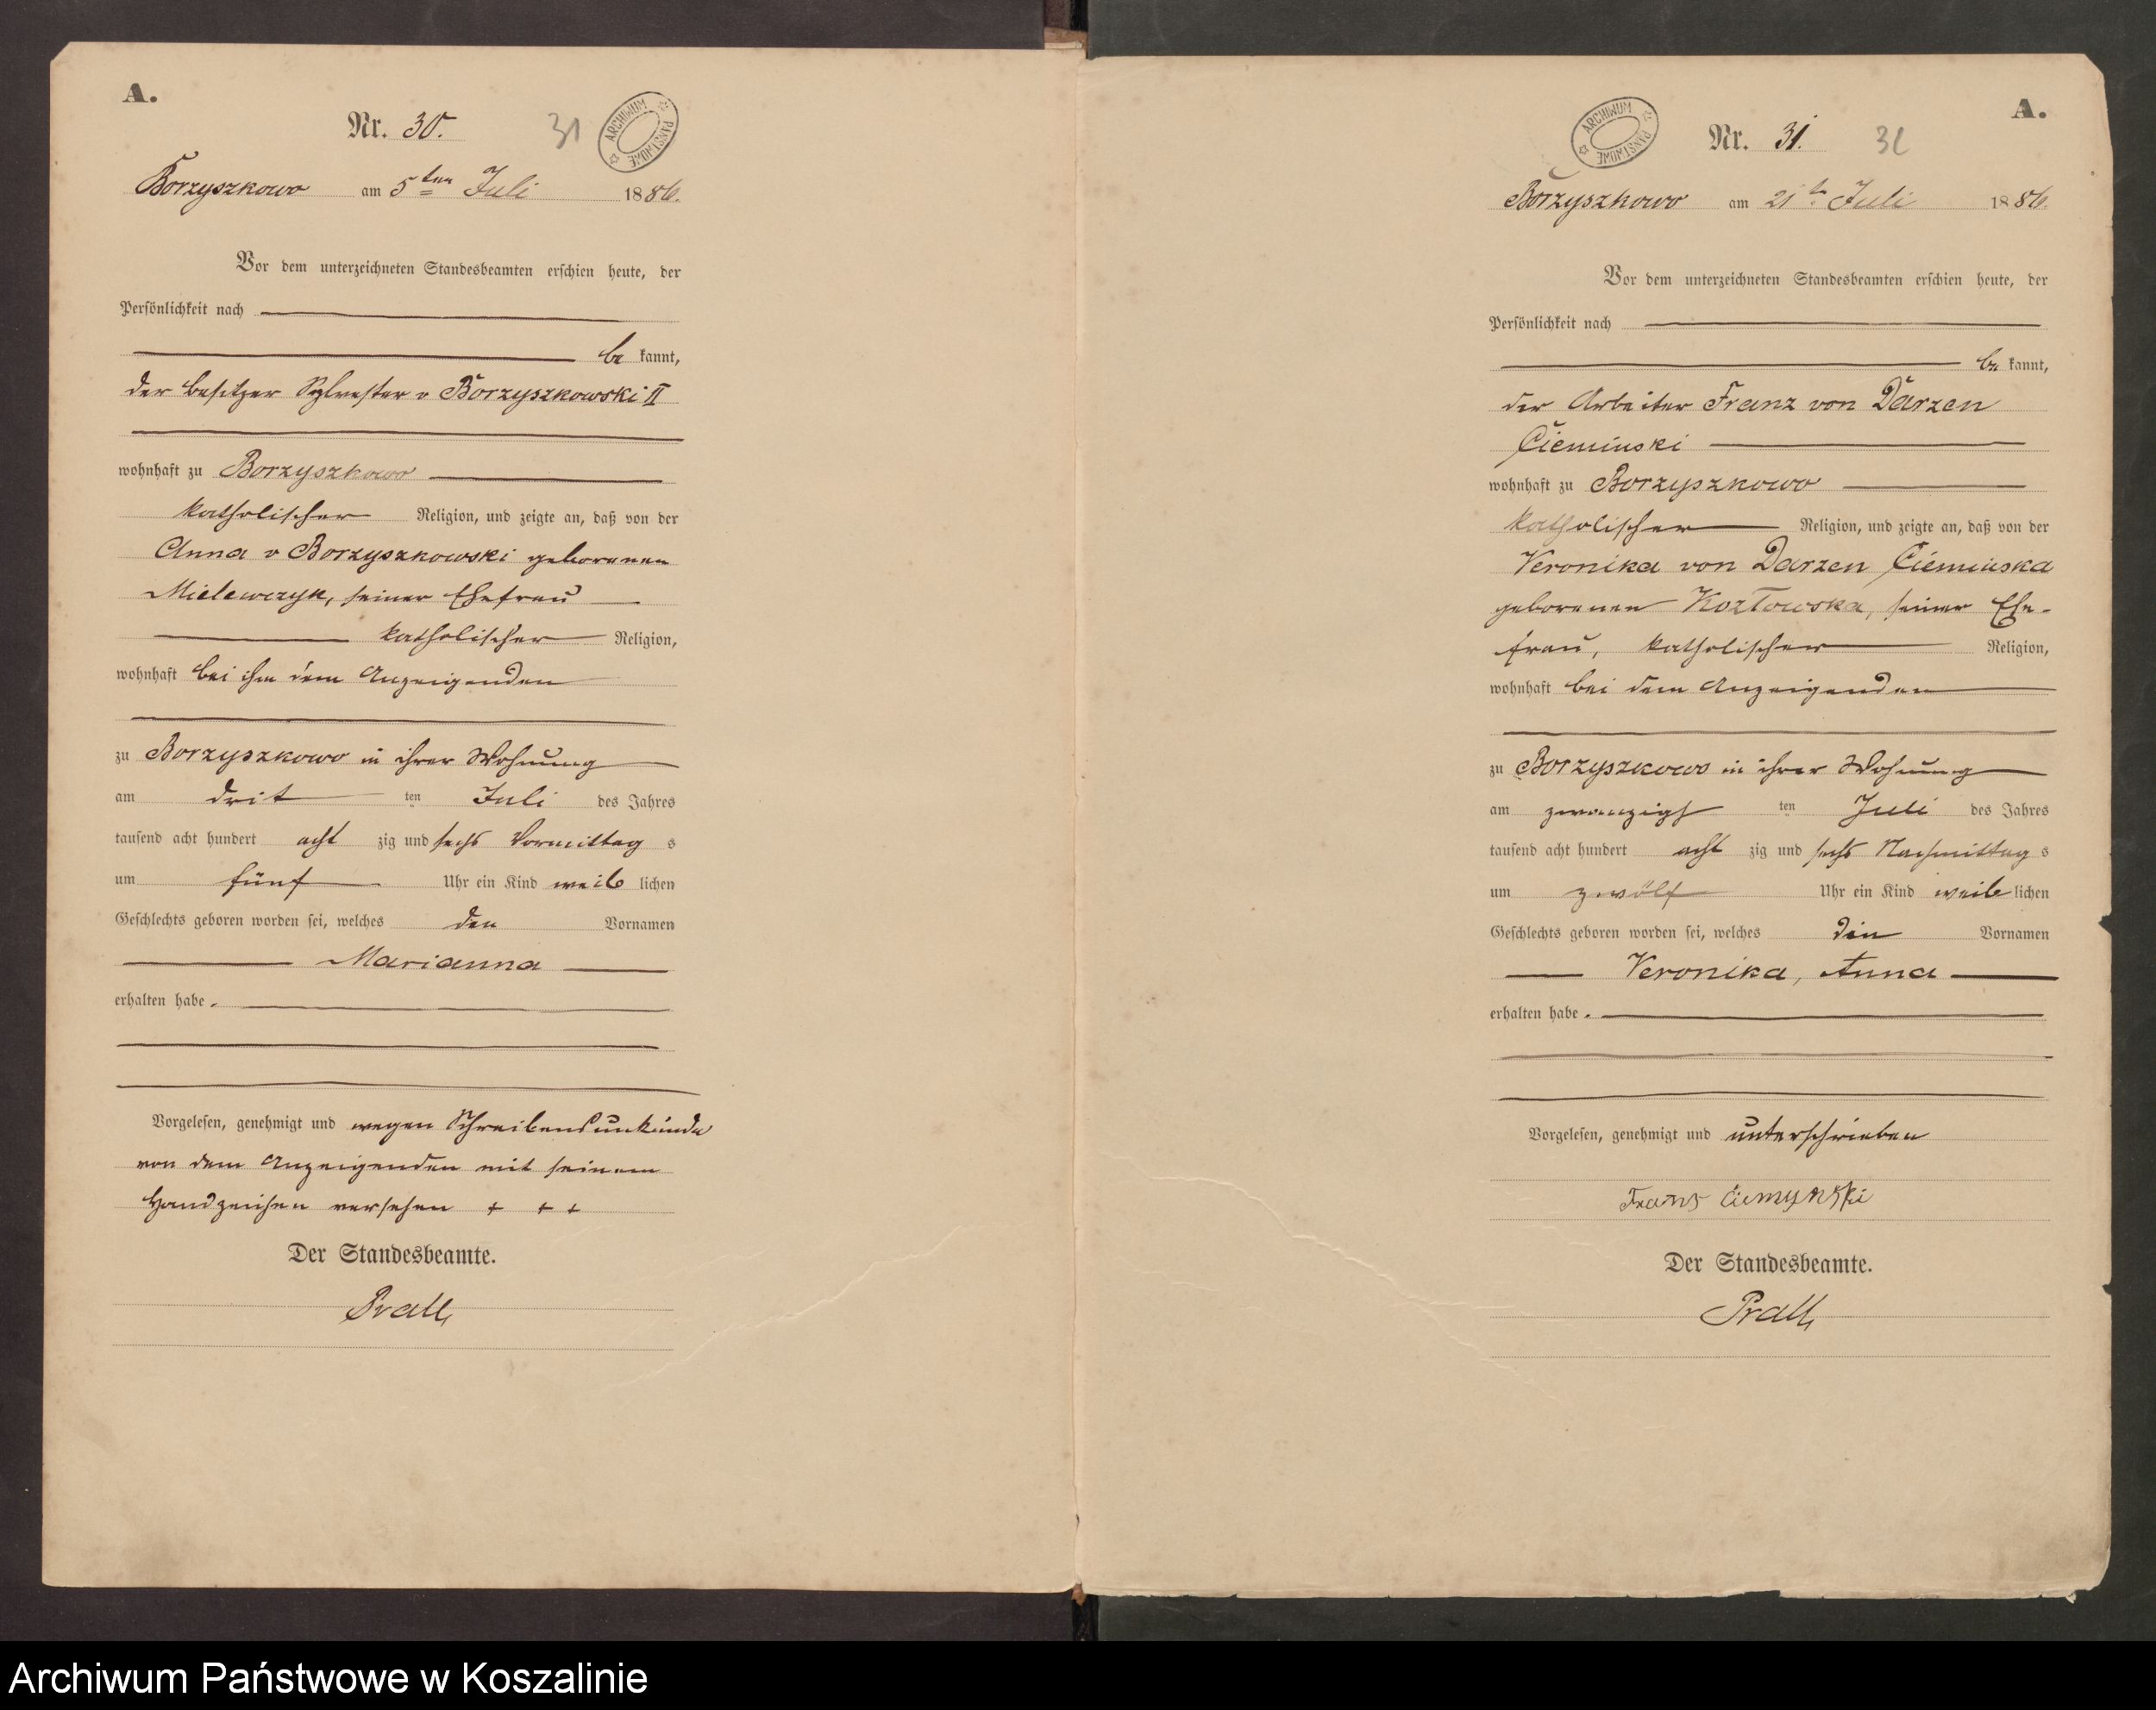 A.
Nr. 30.
31
ARCHIWUM PAŃSTWOWE
Borzyszkowo am 5ten Juli 1886.
Vor dem unterzeichneten Standesbeamten erschien heute, der
Persönlichkeit nach
be kannt,
der Besitzer Sylvester v Borzyszkowski II
wohnhaft zu Borzyszkowo
katholischer Religion, und zeigte an, daß von der
Anna v Borzyszkowski geborenen
Mielewczyk, seiner Ehefrau
katholischer Religion,
wohnhaft bei ihm dem Anzeigenden
zu Borzyszkowo in ihrer Wohnung
am drit ten Juli des Jahres
tausend acht hundert acht zig und sechs Vormittag s
um fünf Uhr ein Kind weib lichen
Geschlechts geboren worden sei, welches den Vornamen
Marianna
erhalten habe.
Vorgelesen, genehmigt und wegen Schreibensunkunde
von dem Anzeigenden mit seinem
Handzeichen versehen + + +
Der Standesbeamte.
Prall
A.
Nr. 31.
32
ARCHIWUM PAŃSTWOWE
Borzyszkowo am 21ten Juli 1886.
Vor dem unterzeichneten Standesbeamten erschien heute, der
Persönlichkeit nach
be kannt,
der Arbeiter Franz von Darzen
Cieminski
wohnhaft zu Borzyszkowo
katholischer Religion, und zeigte an, daß von der
Veronika von Darzen Cieminska
geborenen Kozłowska, seiner Ehe-
frau, katholischer Religion,
wohnhaft bei dem Anzeigenden
zu Borzyszkowo in ihrer Wohnung
am zwanzigs ten Juli des Jahres
tausend acht hundert acht zig und sechs Nachmittag s
um zwölf Uhr ein Kind weib lichen
Geschlechts geboren worden sei, welches die Vornamen
Veronika, Anna
erhalten habe.
Vorgelesen, genehmigt und unterschrieben
Frans Ciemynski
Der Standesbeamte.
Prall
Archiwum Państwowe w Koszalinie